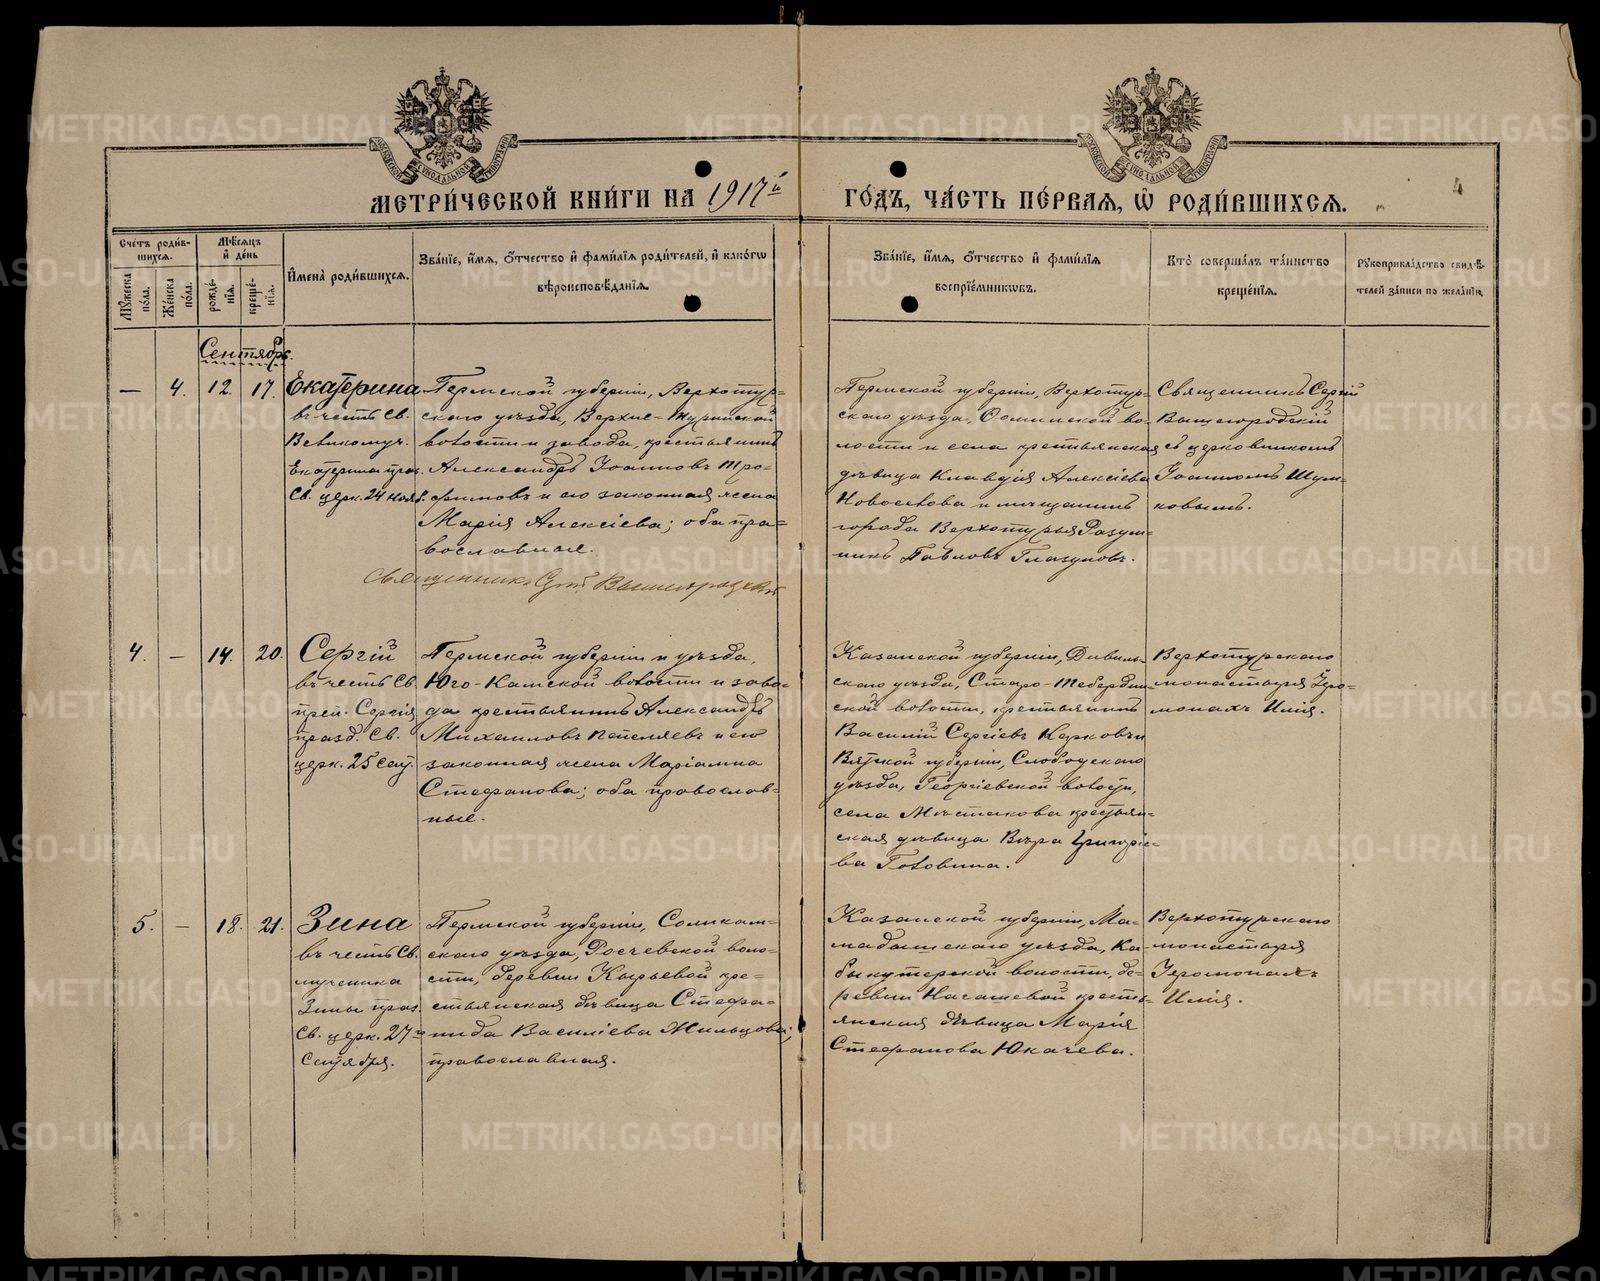 МЕТРИ́ЧЕСКОЙ КНИ́ГИ НА 1917й ГО́ДЪ, ЧА́СТЬ ПЕ́РВАЯ, Ѽ РОДИ́ВШИХСЯ.
4
Счетъ роди́вшихся.
Мѣсяцъ и де́нь
И҆мена̀ роди́вшихся.
Зва́нїе, и҆́мя, ѻ҆́тчество и҆ фами́лїя роди́телей, и҆ како́гѡ
вѣроисповѣ́данїѧ.
Зва́нїе, и҆́мя, ѻ҆́тчество и҆ фами́лїя
воспрїе́мникѡвъ.
Кто̀ соверша́лъ та́инство
креще́нїѧ.
Рꙋкоприкла́дство свидѣ́-
телей за́писи по жела́нїю.
Мꙋ́жеска по́ла.
Же́нска по́ла.
рожде́нїѧ.
креще́нїѧ.
Сентябрь.
— 4. 12. 17.
Екатерина
въ честь Св.
Великомуч.
Екатерины праз.
Св. церк. 24 нояб.
Пермской губерніи, Верхотур-
скаго уѣзда, Верхне-Туринской
волости и завода, крестьянинъ
Александръ Іоанновъ Тро-
фимовъ и его законная жена
Марія Алексіева; оба пра-
вославные.
Священникъ Сергій Вышегородскій
Пермской губерніи, Верхотур-
скаго уѣзда, во-
лости и села крестьянская
дѣвица Клавдія Алексіева
Новоселова и мѣщанинъ
города Верхотурья Разум-
никъ Павловъ Глазуновъ.
Священникъ Сергій
Вышегородскій
съ церковникомъ
Іоанномъ Шум-
ковымъ.
4. — 14. 20.
Сергій
въ честь Св.
преп. Сергія
празд. Св.
церк. 25 Сент.
Пермской губерніи и уѣзда,
Юго-Камской волости и заво-
да крестьянинъ Александръ
Михаиловъ Пепеляевъ и его
законная жена Маріамна
Стефанова; оба православ-
ные.
Казанской губерніи,
скаго уѣзда, Старо-
ской волости, крестьянинъ
Василій Сергіевъ и
Вятской губерніи, Слободскаго
уѣзда, Георгіевской волости,
села крестьян-
ская дѣвица Вѣра Григоріе-
ва Головина.
Верхотурскаго
монастыря Іеро-
монахъ Илія.
5. — 18. 21.
Зина
въ честь Св.
мученика
Зины праз.
Св. церк. 27го
Сентября.
Пермской губерніи, Соликам-
скаго уѣзда, Росчевской воло-
сти, деревни Кырьевой кре-
стьянская дѣвица Стефа-
нида Василіева Жильцова;
православная.
Казанской губерніи, Ма-
мадышскаго уѣзда, Ка-
быкутерской волости, де-
ревни кресть-
янская дѣвица Марія
Стефанова Юкачева.
Верхотурскаго
монастыря
Іеромонахъ
Илія.
METRIKI.GASO-URAL.RU